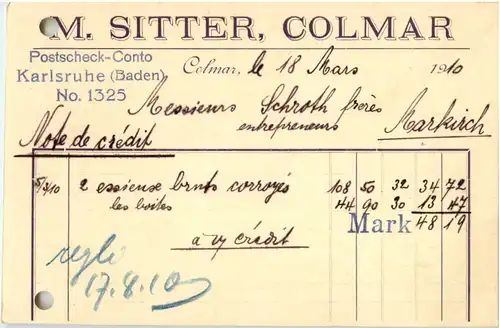 M. SITTER, COLMAR
Postscheck-Conto
Karlsruhe (Baden)
No. 1325
Colmar, le 18 Mars 1910
Messieurs Schroth frères
entrepreneurs Markirch
Note de crédit
2 essieux bruts corroyés 108 50 32 34 72
les boites 44 90 30 13 47
Mark 48 19
à crédit
réglé
17.8.10